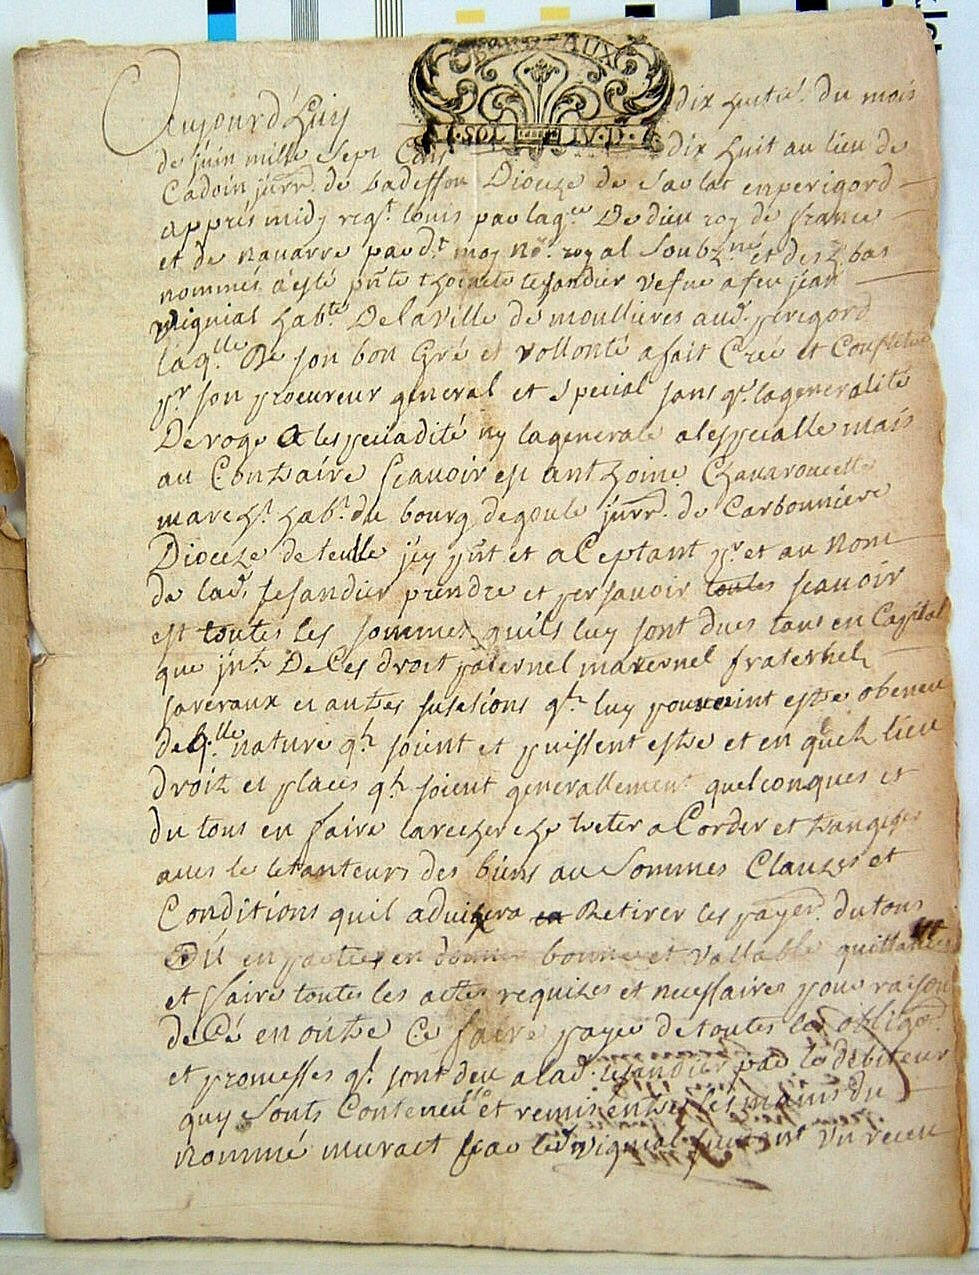 BORDEAUX
1. SOL IV. D.
Aujourd'huy dix huitie. du mois
de juin mille sept cens dix huit au lieu de
Cadoin jurr. de badeffou Dioceze de Sarlat en perigord
apprés midy regt. louis par la gce. De dieu roy de france
et de navarre par dt. moy no. royal soubz.né et des z bas
nommés a esté pnte thoinete tesandier vefve a feu jean
vignial habte. De la ville de moullieres aud. perigord
laqlle De son bon Gré et vollonté a fait Créé et Constitue
pr. son procureur general et special sans q. la generalité
Deroge a les peciadité ny la generale a lespecialle mais
au Contraire scavoir est anthoine Chauroncelle
marcht. habt. du bourg de goule jurr. de Carbonniere
Dioceze de teulle jcy pnt et aCeptant pr. et au nom
de lad. tesandier prendre et persavoir toutes scavoir
est toutes les sommes quils luy sont dues tans en Capital
que jnth. De Ces droit paternel maternel fraternels
soreraux et autres susesions qh. luy pouroint estre obeneu
de q.lle nature qh. soient et puissent estre et en quels lieu
droiz et places qh. soient generallement quelconques et
du tous en faire la recherche treter aCorder et trangiger
avec le letanteurs des biens au sommes Clauzes et
Conditions quil advizera en Retirer les payer. du tous
Ou en partie en donner bonne et vallable quittances
et faire toutes les actes requizes et necessaires pour raison
de Cé en outre Ce faire payer de toutes les obligo.
et promesses q. sont deu a lad. tesandier par le debiteur
quy sonts Conteneus et remis entre les mains du
nommé muract par led. vignial suivant un receu